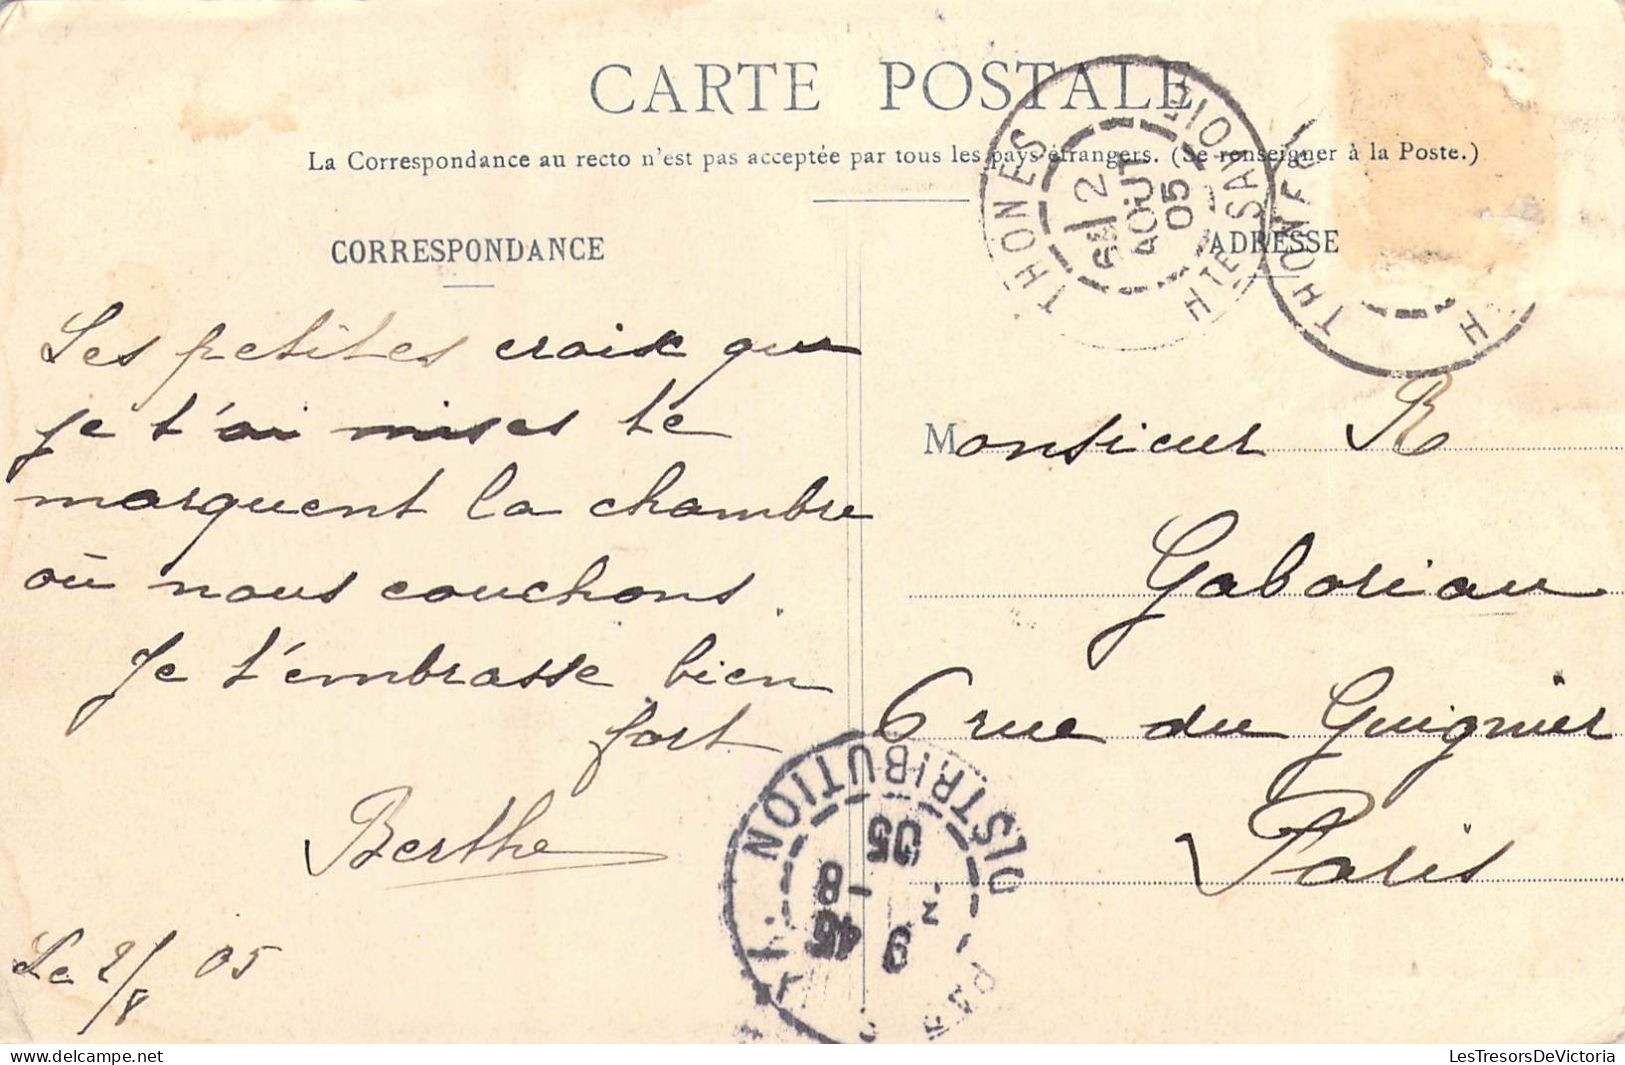 CARTE POSTALE
La Correspondance au recto n'est pas acceptée par tous les pays étrangers. (Se renseigner à la Poste.)
CORRESPONDANCE
ADRESSE
THONES
HTE SAVOIE
2
AOUT
05
THON
H
Les petites croix que
je t'ai mises te
marquent la chambre
où nous couchons.
Je t'embrasse bien
fort
Berthe
Le 2/8 05
Monsieur R
Gaboriau
6 rue du Guignier
Paris
DISTRIBUTION
PAR
9
45
8
05
LesTresorsDeVictoria
les-tresors-de-victoria.delcampe.net